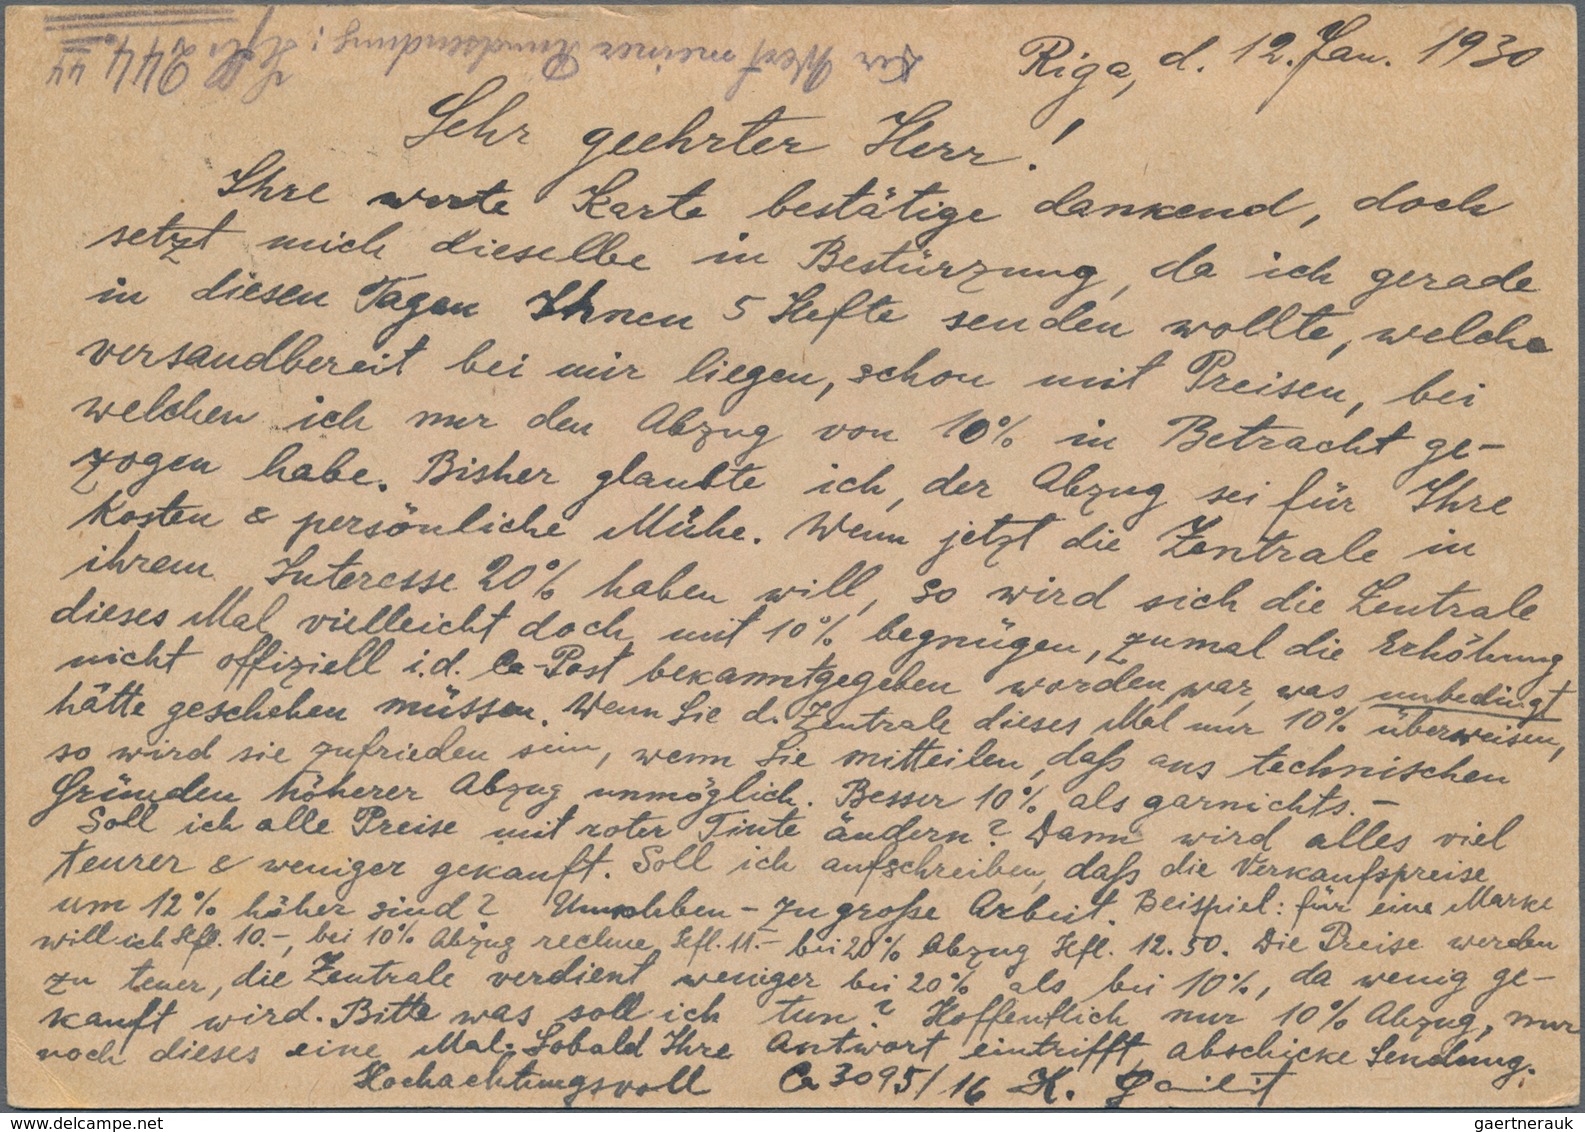 Der Wert meiner Rundsendung: Hfl. 244.44
Riga, d. 12. Jan. 1930
Sehr geehrter Herr!
Ihre werte Karte bestätige dankend, doch
setzt mich dieselbe in Bestürzung, da ich gerade
in diesen Tagen Ihnen 5 Hefte senden wollte, welche
versandbereit bei mir liegen, schon mit Preisen, bei
welchen ich nur den Abzug von 10% in Betracht ge-
zogen habe. Bisher glaubte ich, der Abzug sei für Ihre
Kosten & persönliche Mühe. Wenn jetzt die Zentrale in
ihrem Interesse 20% haben will, so wird sich die Zentrale
dieses Mal vielleicht doch mit 10% begnügen, zumal die Erhöhung
nicht offiziell i. d. Ca-Post bekanntgegeben worden war, was unbedingt
hätte geschehen müssen. Wenn Sie d. Zentrale dieses Mal nur 10% überweisen,
so wird sie zufrieden sein, wenn Sie mitteilen, daß aus technischen
Gründen höherer Abzug unmöglich. Besser 10% als garnichts. –
Soll ich alle Preise mit roter Tinte ändern? Dann wird alles viel
teurer & weniger gekauft. Soll ich aufschreiben, daß die Verkaufspreise
um 12% höher sind? Umkleben – zu große Arbeit. Beispiel: für eine Marke
will ich Hfl. 10.–, bei 10% Abzug rechne Hfl. 11.– bei 20% Abzug Hfl. 12.50. Die Preise werden
zu teuer, die Zentrale verdient weniger bei 20% als bei 10%, da wenig ge-
kauft wird. Bitte was soll ich tun? Hoffentlich nur 10% Abzug, nur
noch dieses eine Mal. Sobald Ihre Antwort eintrifft, abschicke Sendung.
Hochachtungsvoll Ca 3095/16 K.
gaertnerauk